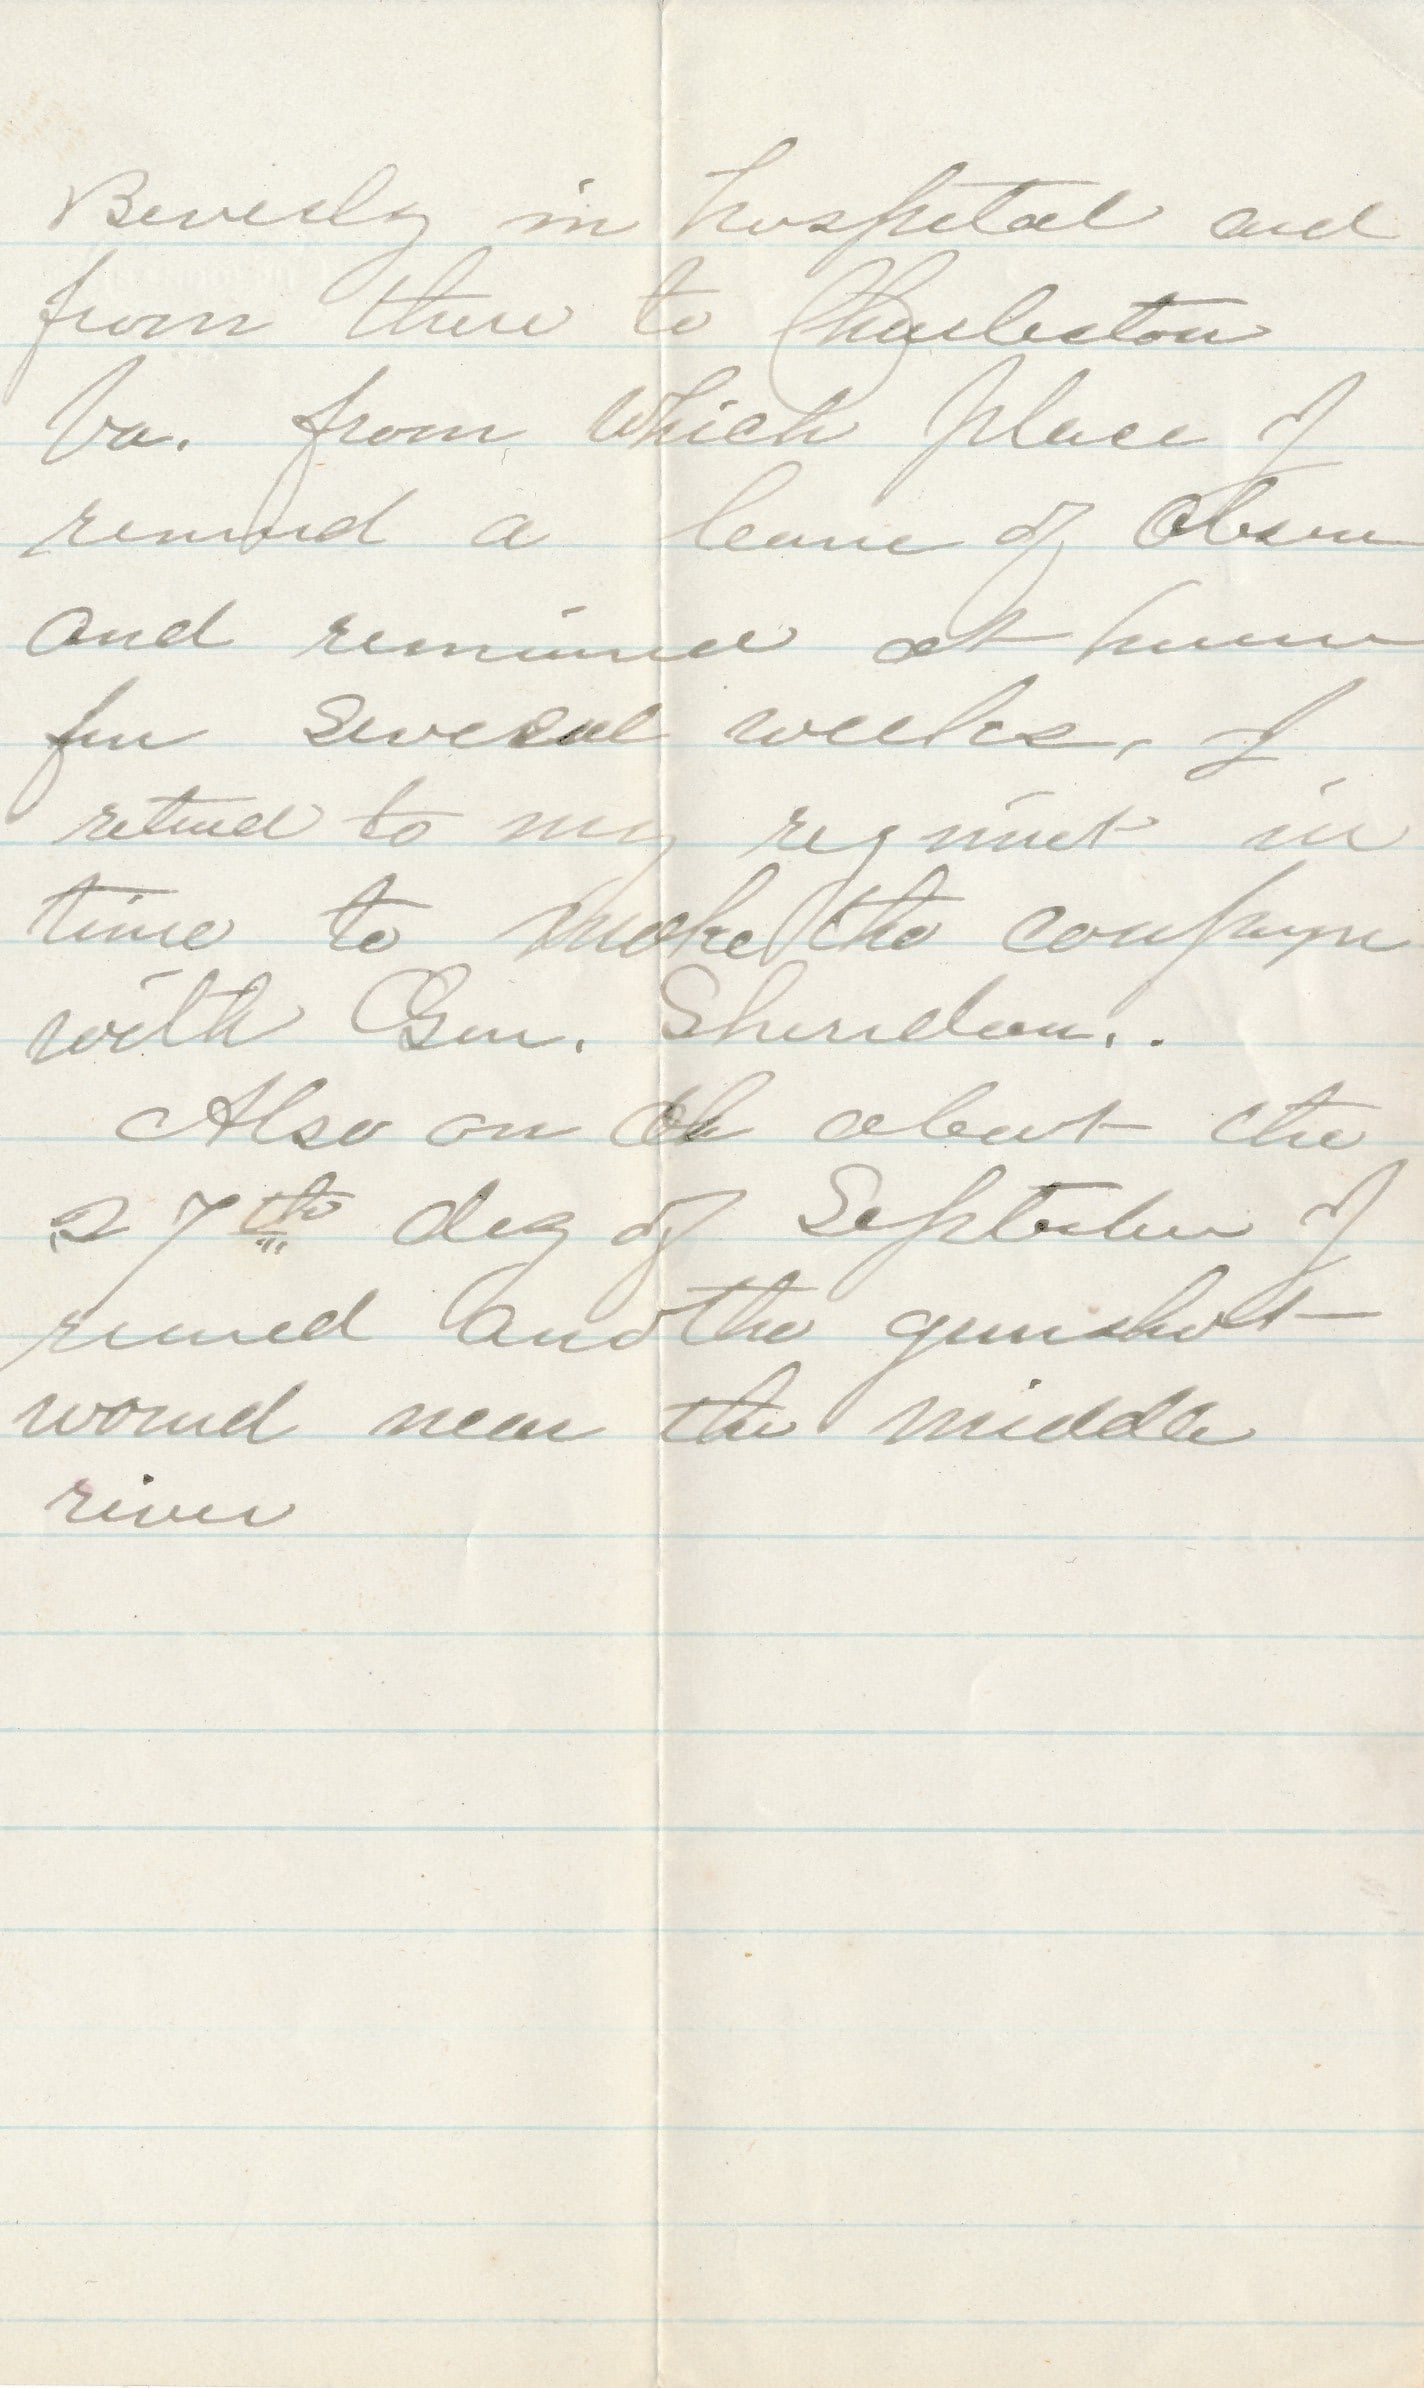 Beverly in hospital and
from there to Charleston
Va. from which place I
recived a leave of absen
and remained at home
for several weeks, I
returned to my regimet in
time to make the campaign
with Gen. Sheridan..
Also on or about the
27th day of September I
recived another gunshot
wound near the middle
river